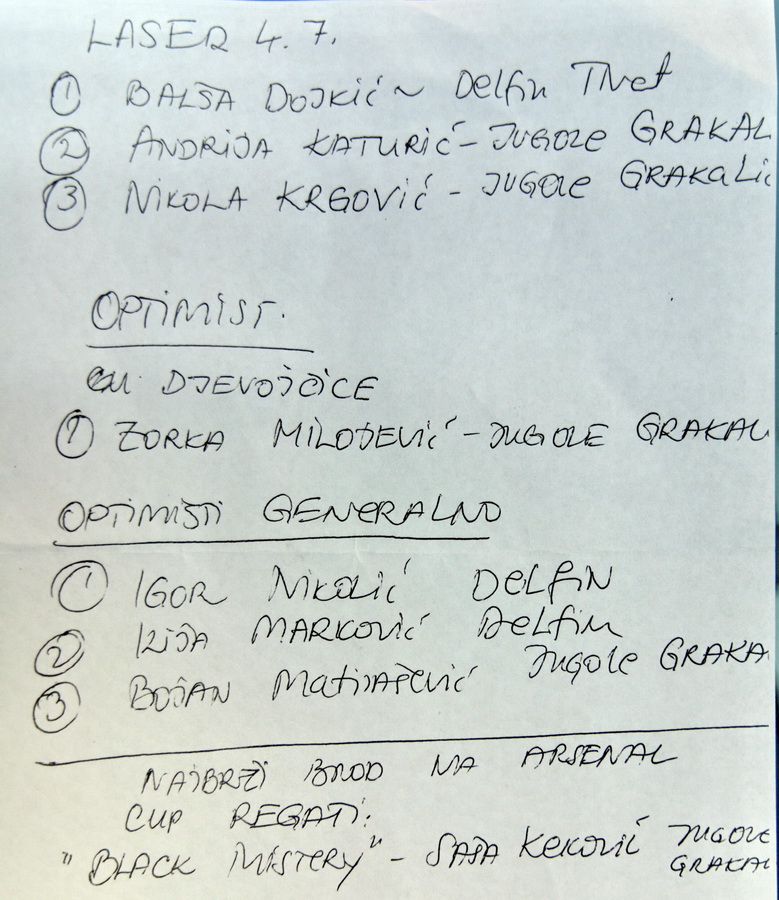 LASER 4.7.
① BALŠA DOJKIĆ ~ Delfin Tivat
② ANDRIJA KATURIĆ - JUGOLE GRAKAL
③ NIKOLA KRGOVIĆ - JUGOLE GRAKALIĆ
OPTIMIST.
DJEVOJČICE
① ZORKA MILOŠEVIĆ - JUGOLE GRAKAL
OPTIMISTI GENERALNO
① IGOR NIKOLIĆ DELFIN
② ILIJA MARKOVIĆ DELFIN
③ BOJAN MATIJAŠEVIĆ JUGOLE GRAKA
NAJBRŽI BROD NA ARSENAL
CUP REGATI:
"BLACK MISTERY" - SAŠA KEKOVIĆ JUGOLE
GRAKAL